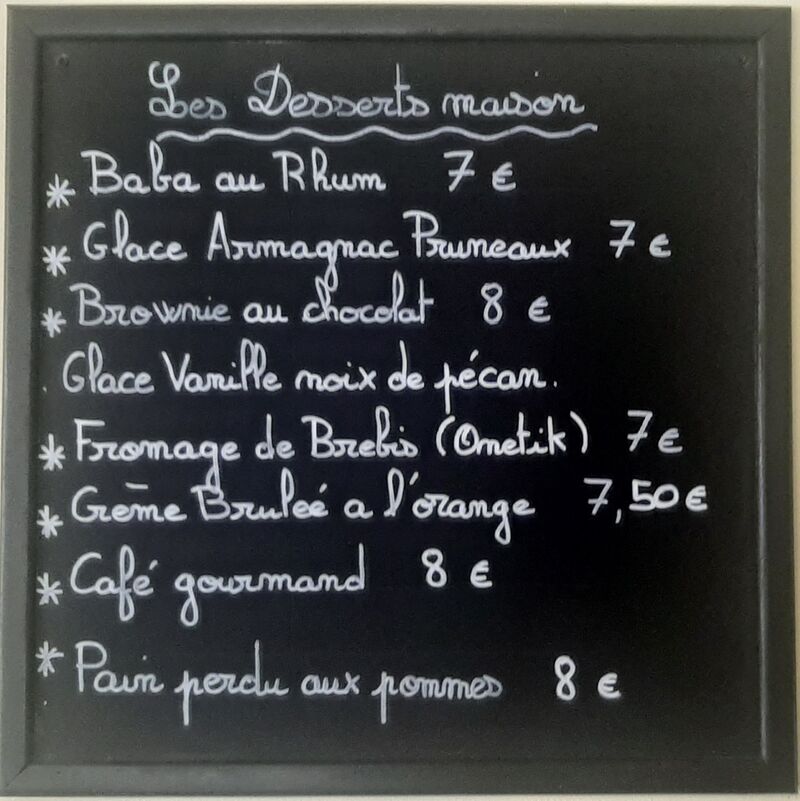 Les Desserts maison
* Baba au Rhum 7 €
* Glace Armagnac Pruneaux 7 €
* Brownie au chocolat 8 €
. Glace Vanille noix de pécan.
* Fromage de Brebis (Ometik) 7 €
* Crème Bruleé a l'orange 7,50 €
* Café gourmand 8 €
* Pain perdu aux pommes 8 €